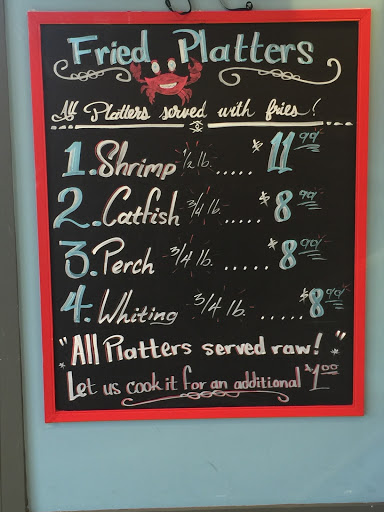 Fried Platters
All Platters served with fries!
1. Shrimp 1/2 lb. ..... $11.99
2. Catfish 3/4 lb. ..... $8.99
3. Perch 3/4 lb. ..... $8.99
4. Whiting 3/4 lb. ..... $8.99
"All Platters served raw!"
Let us cook it for an additional $1.00